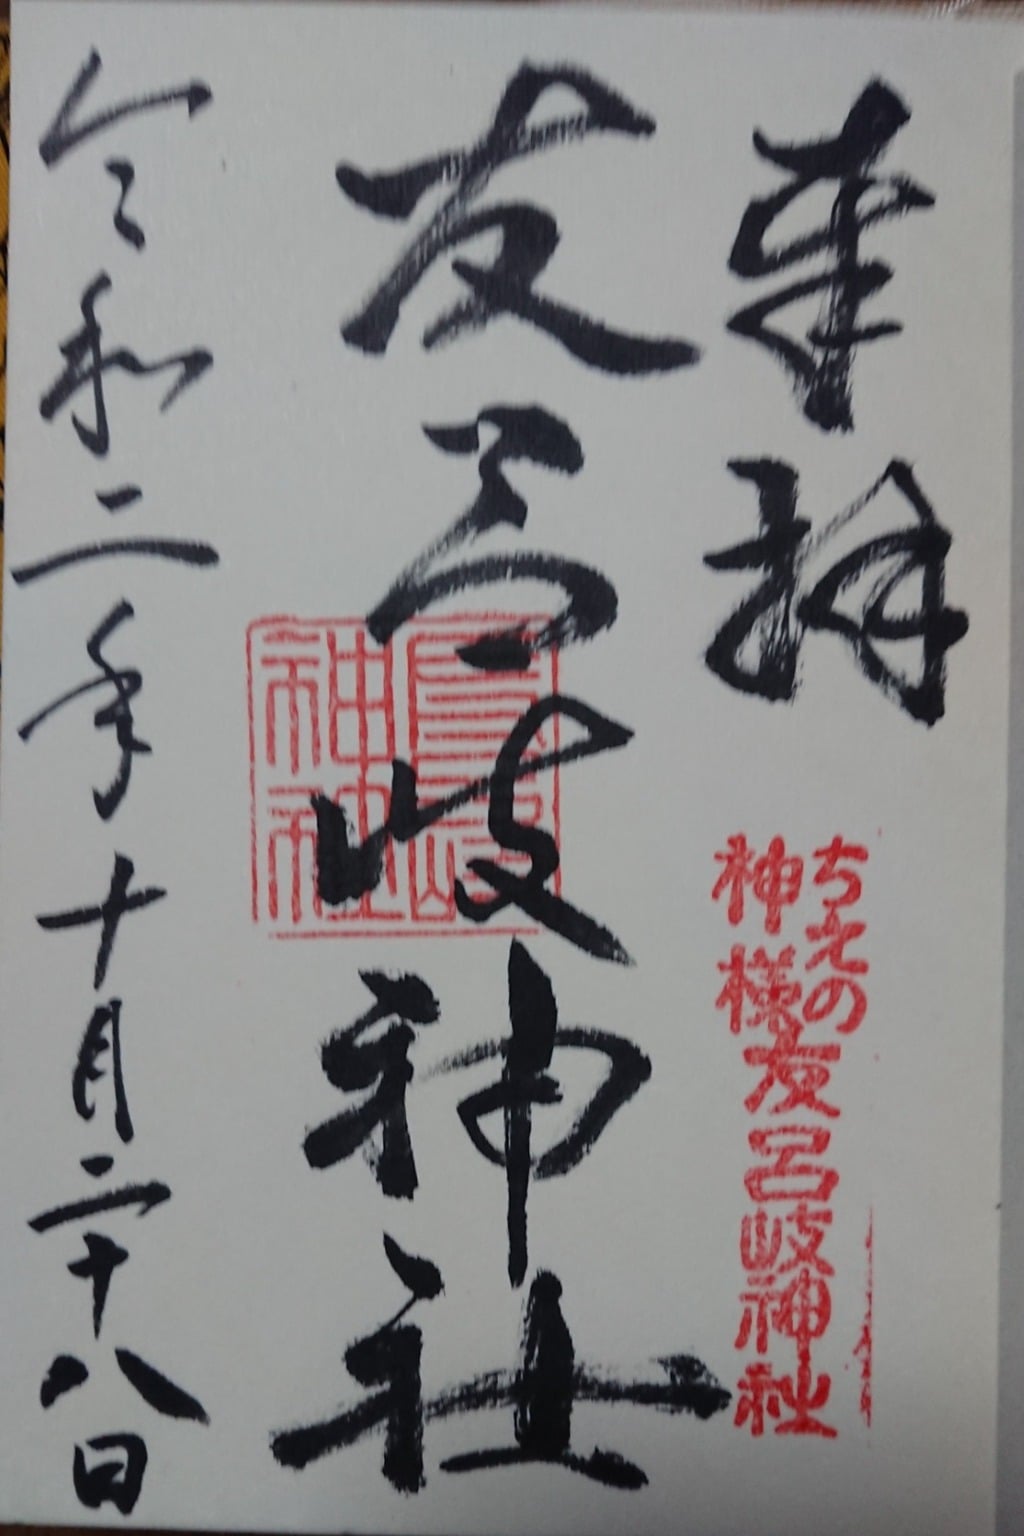 奉拝
ちえの
神様
友呂岐神社
友呂岐神社
令和二年十月二十八日